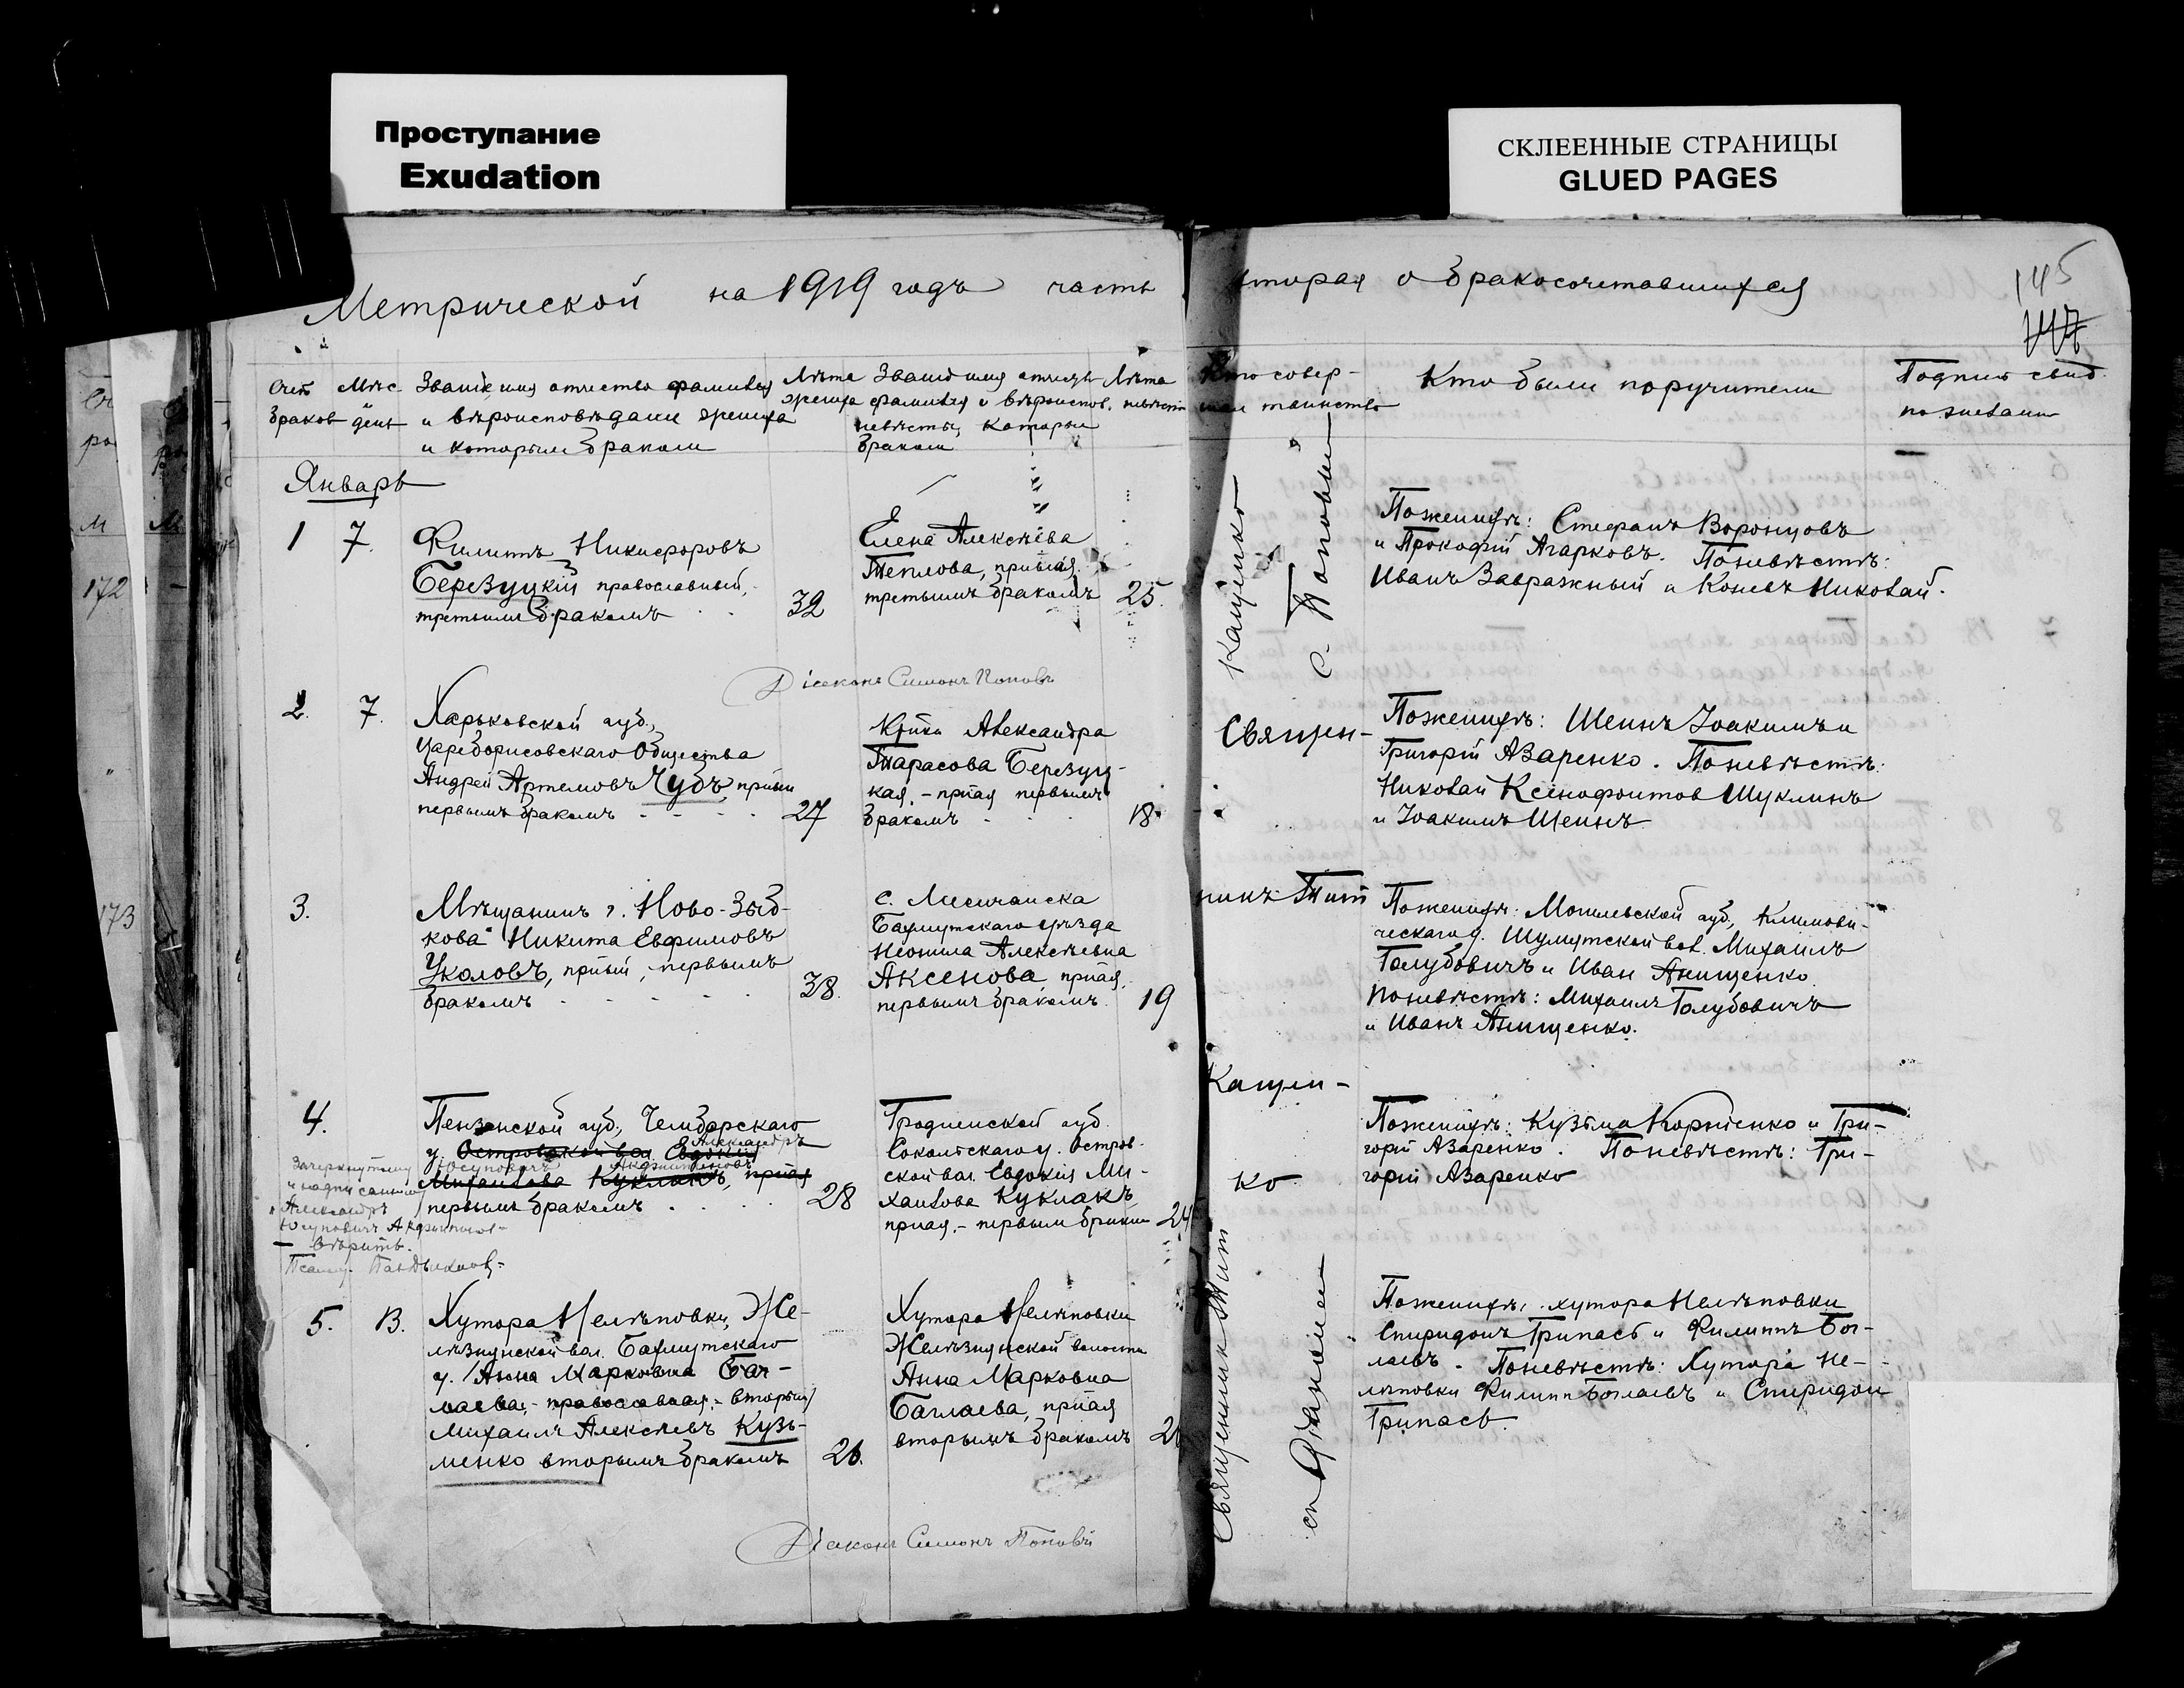 Проступание
Exudation
СКЛЕЕННЫЕ СТРАНИЦЫ
GLUED PAGES
Метрической на 1919 годъ часть вторая о бракосочетавшихся
145
Счет браков
Мѣс. день
Званіе, имя отчество фамилія
и вѣроисповѣдание жениха
и которым браком
Лѣта жениха
Званіе имя отчеств
фамилія и вѣроиспов.
невѣсты, которым
браком
Лѣта невѣсты
Кто совер-
шал таинство
Кто были поручители
Подпис свид.
по желанию
Январь
1 7.
Филиппъ Никифоровъ
Березуцкій православный,
третьим бракомъ 32
Елена Алексѣева
Теплова, прав́ая.
третьимъ бракомъ 25.
Поженихѣ: Стефанъ Воронцовъ
и Прокофій Агарковъ. Поневѣстѣ:
Иванъ Завражный и Коневъ Николай.
Діаконъ Симонъ Поповъ
2. 7.
Харьковской губ.,
Цареборисовскаго Общества
Андрей Артемовъ Чубъ,
первымъ бракомъ 27
Александра
Тарасова Березуц-
кая, - прая первымъ
бракомъ 18.
Поженихѣ: Шеинъ Іоакимъ и
Григорій Азаренко. Поневѣстѣ:
Николай Ксенофонтов Шуклинъ
и Іоакимъ Шеинъ
3.
Мѣщанинъ г. Ново-Зыб-
кова Никита Евфимовъ
Уколовъ, прый, первымъ
бракомъ 38.
с. Лисичанска
Бахмутскаго уѣзда
Неонила Алексѣевна
Аксенова, прая,
первымъ бракомъ. 19
Поженихѣ: Могилевской губ., Климови-
ческаго у. Михаилъ
Голубовичъ и Иван Анищенко.
Поневѣстѣ: Михаилъ Голубовичъ
и Иванъ Анищенко.
4.
Пензенской губ., Чембарскаго
Александръ
у. Островской вол. Евдокия
Юсуповичъ
Михайлова Куклакъ, прая
первымъ бракомъ 28
Зачеркнутому
и надписанному
Александръ
Юсуповичъ
вѣрить.
Гродненской губ.
Сокольскаго у. Остров-
ской вол. Евдокия Ми-
хайлова Куклакъ
прая, - первым браком 24
Поженихѣ: Кузьма Корніенко и Гри-
горій Азаренко. Поневѣстѣ: Гри-
горій Азаренко
5. 13.
Хутора Нелѣповки, Же-
лѣзнянской вол. Бахмутскаго
у. Анна Марковна Баг-
лаева, - православная, - вторым
Михаилъ Алексѣевъ Кузь-
менко вторымъ бракомъ 26.
Хутора Нелѣповки
Желѣзнянской волости
Анна Марковна
Баглаева, прая
вторымъ бракомъ
Поженихѣ, хутора Нелѣповки
Спиридонъ Трипасъ и Филиппъ Баг-
лаевъ. Поневѣстѣ: Хутора Не-
лѣповки Филипп Баглаевъ и Спиридон
Трипасъ.
Діаконъ Симонъ Поповъ
Священ-
никъ Тит
Кащен-
ко
Кащенко
с. Поповым
Священник Тит
Діаконом
172
173